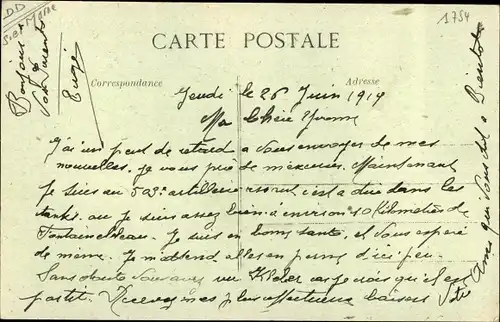 DD
S et Marne
1754
CARTE POSTALE
Correspondance
Adresse
Jeudi le 26 Juin 1919
Ma Chère Yvonne
J'ai un peut de retard a vous envoyer de mes
nouvelles. je vous prie de m'excuser. Maintenant
Je suis au 503e artillerie c'est a dire dans les
tanks. ou Je suis assez bien a environs 10 Kilomètres de
Fontainebleau. Je suis en bonne santé, et vous espère
de même. Je m'attend allez en perme d'ici peu.
Sans doute vous avez vu car je crois qu'il est
parti. Recevez mes plus affectueux baisers
Votre Ami qui vous dit a Bientôt
Bonjour
a
vos Parents
Eugène